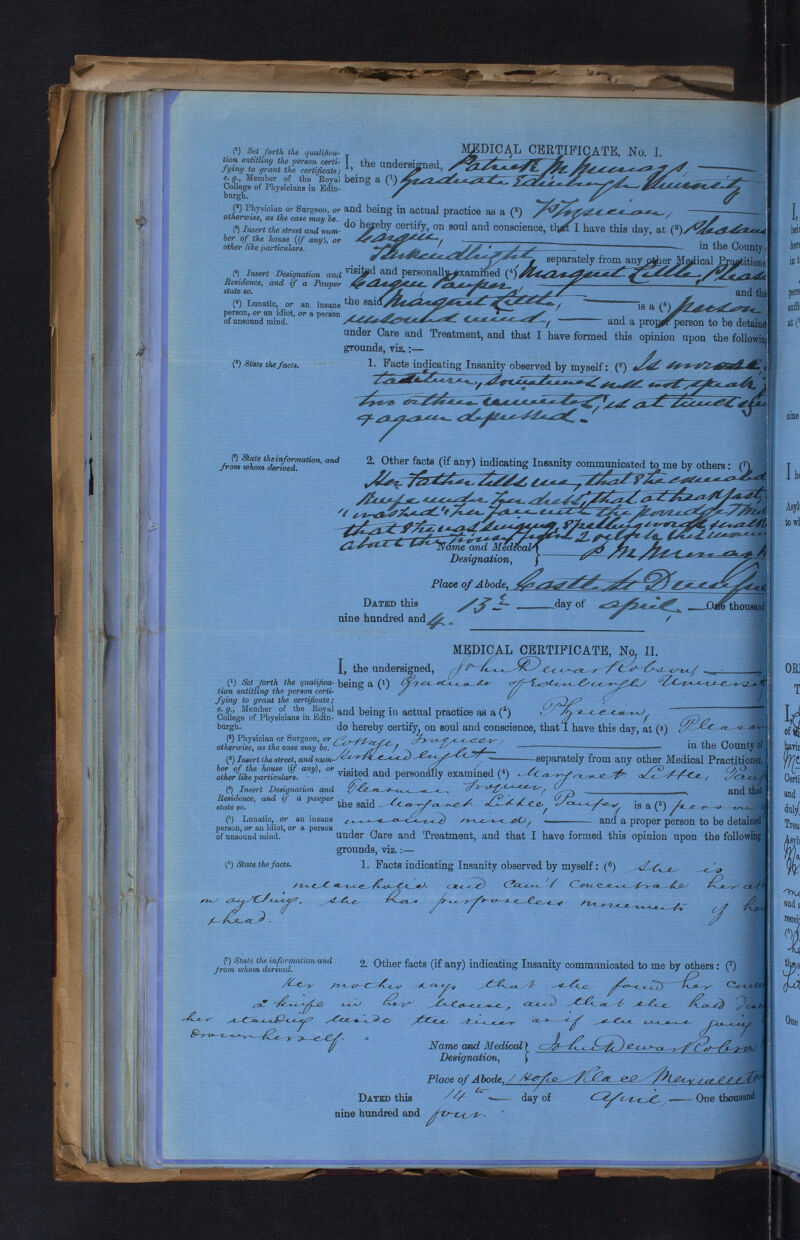 MEDICAL CERTIFICATE, No. I.
(¹) Set forth the qualifica-
tion entitling the person certi-
fying to grant the certificate;
e. g., Member of the Royal
College of Physicians in Edin-
burgh.
(²) Physician or Surgeon, or
otherwise, as the case may be.
(³) Insert the street and num-
ber of the house (if any), or
other like particulars.
(⁴) Insert Designation and
Residence, and if a Pauper
state so.
(⁵) Lunatic, or an insane
person, or an idiot, or a person
of unsound mind.
(⁶) State the facts.
(⁷) State the information, and
from whom derived.
I, the undersigned, Patrick M Murragh
being a (¹) Graduate Edinburgh University
and being in actual practice as a (²) Physician,
do hereby certify, on soul and conscience, that I have this day, at (³)
Cargen, in the County
Kirkcudbright separately from any other Medical Practitione
visited and personally examined (⁴) Margaret Little,
Cargen Pauper, and th
the said Margaret Little, is a (⁵) person
unsound mind, and a proper person to be detaine
under Care and Treatment, and that I have formed this opinion upon the followin
grounds, viz.:—
1. Facts indicating Insanity observed by myself: (⁶) Is morose
taciturn, sometimes will not speak
two or three minutes, is at times
& again depressed.
2. Other facts (if any) indicating Insanity communicated to me by others: (⁷)
Her Father tells me, that she
knife under her dress, that at breakfast,
"washed" her face with the porridge
that she was singing, spelling words
about the house
Name and Medical
Designation,
Place of Abode, Castle St
DATED this 13th day of April One thousand
nine hundred and 4.
MEDICAL CERTIFICATE, No. II.
(¹) Set forth the qualifica-
tion entitling the person certi-
fying to grant the certificate;
e. g., Member of the Royal
College of Physicians in Edin-
burgh.
(²) Physician or Surgeon, or
otherwise, as the case may be.
(³) Insert the street, and num-
ber of the house (if any), or
other like particulars.
(⁴) Insert Designation and
Residence, and if a pauper
state so.
(⁵) Lunatic, or an insane
person, or an idiot, or a person
of unsound mind.
(⁶) State the facts.
(⁷) State the information and
from whom derived.
I, the undersigned, John Dewar Robson
being a (¹) Graduate of Edinburgh Universit
and being in actual practice as a (²) Physician,
do hereby certify, on soul and conscience, that I have this day, at (³)
Cottage, Troqueer, in the County of
Kirkcudbright separately from any other Medical Practitioner,
visited and personally examined (⁴) Margaret Little,
Troqueer, and that
the said Margaret Little, Pauper, is a (⁵) person
unsound mind, and a proper person to be detained
under Care and Treatment, and that I have formed this opinion upon the following
grounds, viz.:—
1. Facts indicating Insanity observed by myself: (⁶) She is
melancholic and can't concentrate her
on anything. She has purposeless movements of
& head.
2. Other facts (if any) indicating Insanity communicated to me by others: (⁷)
Her mother says that she found her
a knife in her blouse, and that she had
her standing beside the river as if she were going
drown herself.
Name and Medical
Designation, John Dewar Robson
Place of Abode, 1 Hope Place
DATED this 14th day of April One thousand
nine hundred and four.